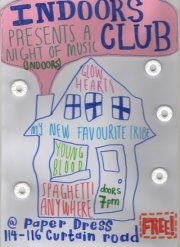 INDOORS
CLUB
PRESENTS A
NIGHT OF MUSIC
(INDOORS)
GLOW
HEARTS
MY NEW FAVOURITE TRIBE
YOUNG
BLOOD
SPAGHETTI
ANYWHERE
doors
7pm
@ PAPER DRESS
114-116 CURTAIN ROAD
FREE!